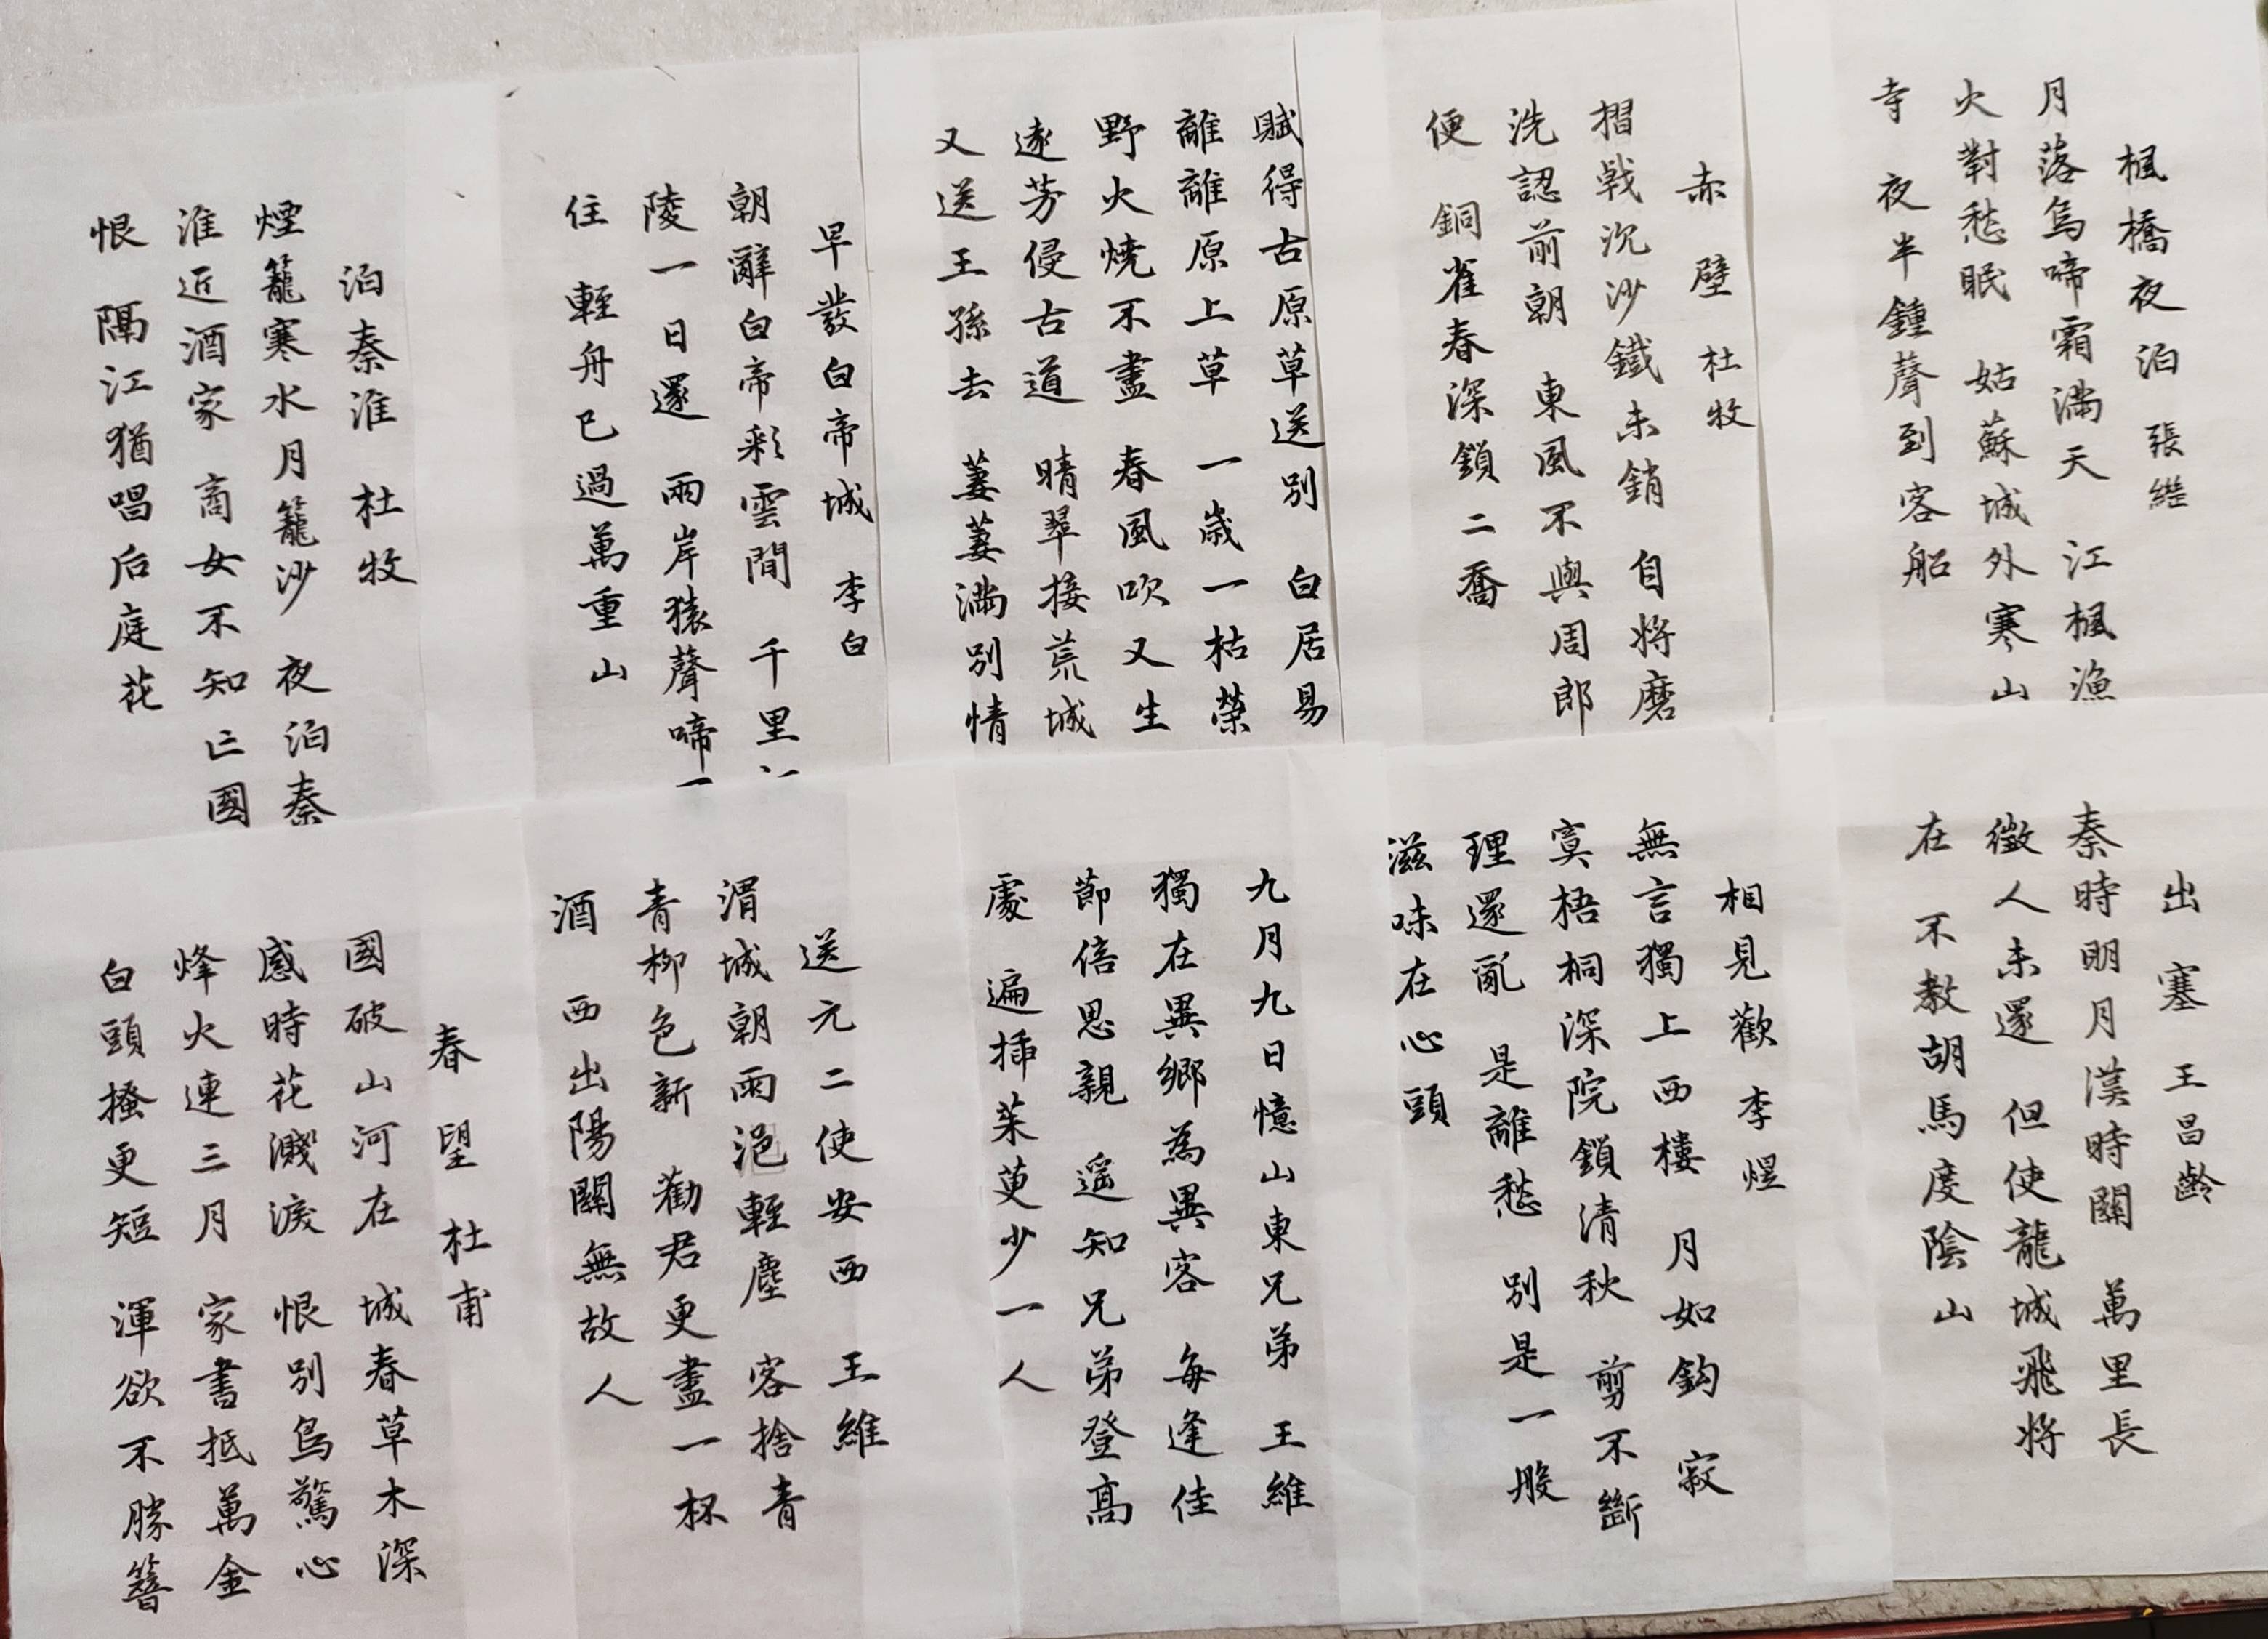 楓橋夜泊 張繼
月落烏啼霜滿天 江楓漁
火對愁眠 姑蘇城外寒山
寺 夜半鍾聲到客船
赤壁 杜牧
摺戟沉沙鐵未銷 自將磨
洗認前朝 東風不與周郎
便 銅雀春深鎖二喬
賦得古原草送別 白居易
離離原上草 一歲一枯榮
野火燒不盡 春風吹又生
遠芳侵古道 晴翠接荒城
又送王孫去 萋萋滿別情
早發白帝城 李白
朝辭白帝彩雲間 千里
陵一日還 兩岸猿聲啼
住 輕舟已過萬重山
泊秦淮 杜牧
煙籠寒水月籠沙 夜泊秦
淮近酒家 商女不知亡國
恨 隔江猶唱后庭花
出塞 王昌齡
秦時明月漢時關 萬里長
徵人未還 但使龍城飛將
在 不教胡馬度陰山
相見歡 李煜
無言獨上西樓 月如鈎 寂
寞梧桐深院鎖清秋 剪不斷
理還亂 是離愁 別是一般
滋味在心頭
九月九日憶山東兄弟 王維
獨在異鄉為異客 每逢佳
節倍思親 遥知兄弟登高
處 遍插茱萸少一人
送元二使安西 王維
渭城朝雨浥輕塵 客捨青
青柳色新 勸君更盡一杯
酒 西出陽關無故人
春望 杜甫
國破山河在 城春草木深
感時花濺淚 恨別鳥驚心
烽火連三月 家書抵萬金
白頭搔更短 渾欲不勝簪